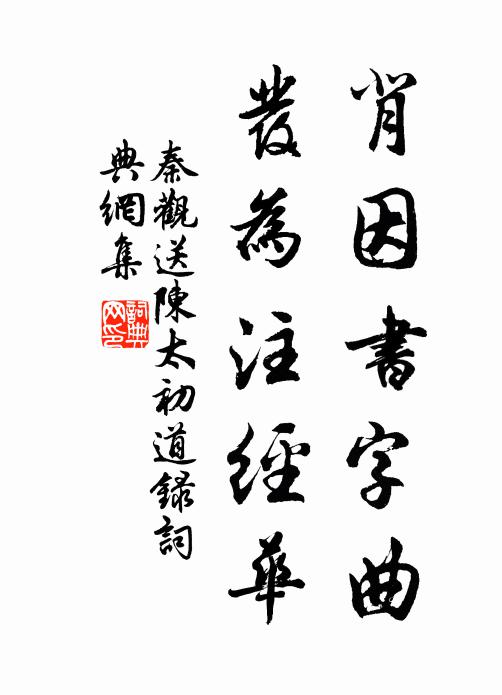 肖因書字曲
發為注經華
秦觀送陳太初道録詞
典網集
詞典
网印